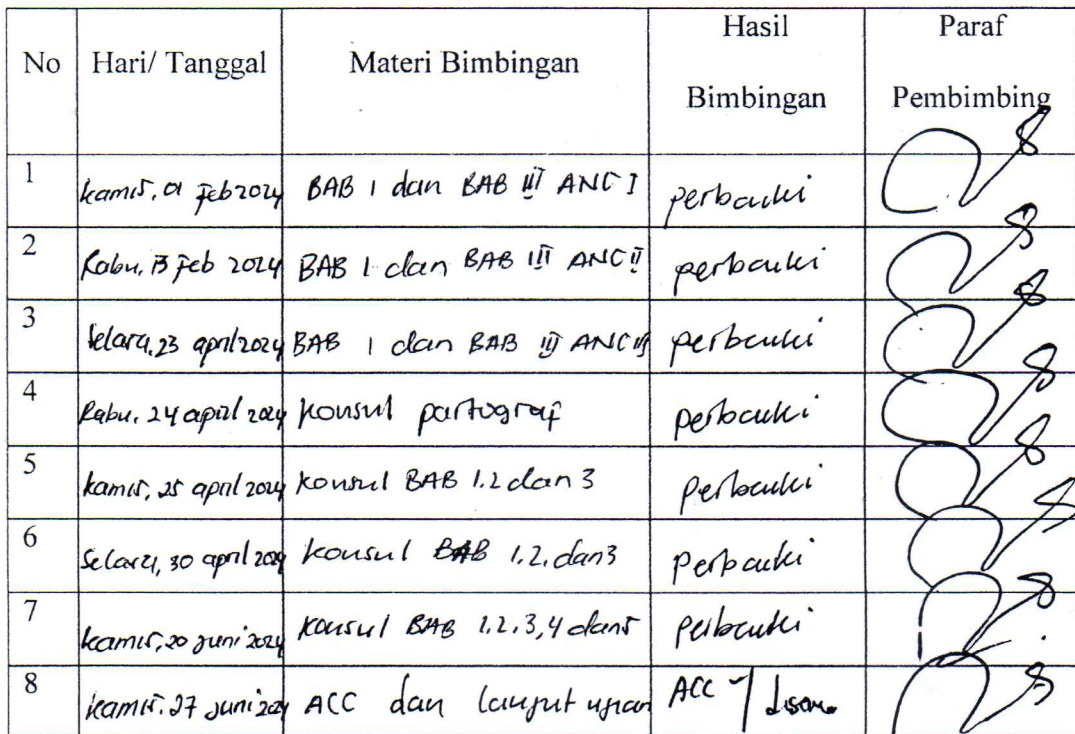 No Hari/ Tanggal Materi Bimbingan Hasil Bimbingan Paraf Pembimbing
1 Kamis, 01 Feb 2024 BAB I dan BAB III ANC I perbaiki
2 Rabu, 13 Feb 2024 BAB I dan BAB III ANC II perbaiki
3 Selasa, 23 april 2024 BAB I dan BAB III ANC III perbaiki
4 Rabu, 24 april 2024 Konsul partograf perbaiki
5 Kamis, 25 april 2024 Konsul BAB 1.2 dan 3 Perbaiki
6 Selasa, 30 april 2024 Konsul BAB 1.2. dan 3 Perbaiki
7 Kamis, 20 Juni 2024 Konsul BAB 1.2.3,4 dan 5 Perbaiki
8 Kamis. 27 Juni 2024 ACC dan lanjut ujian ACC